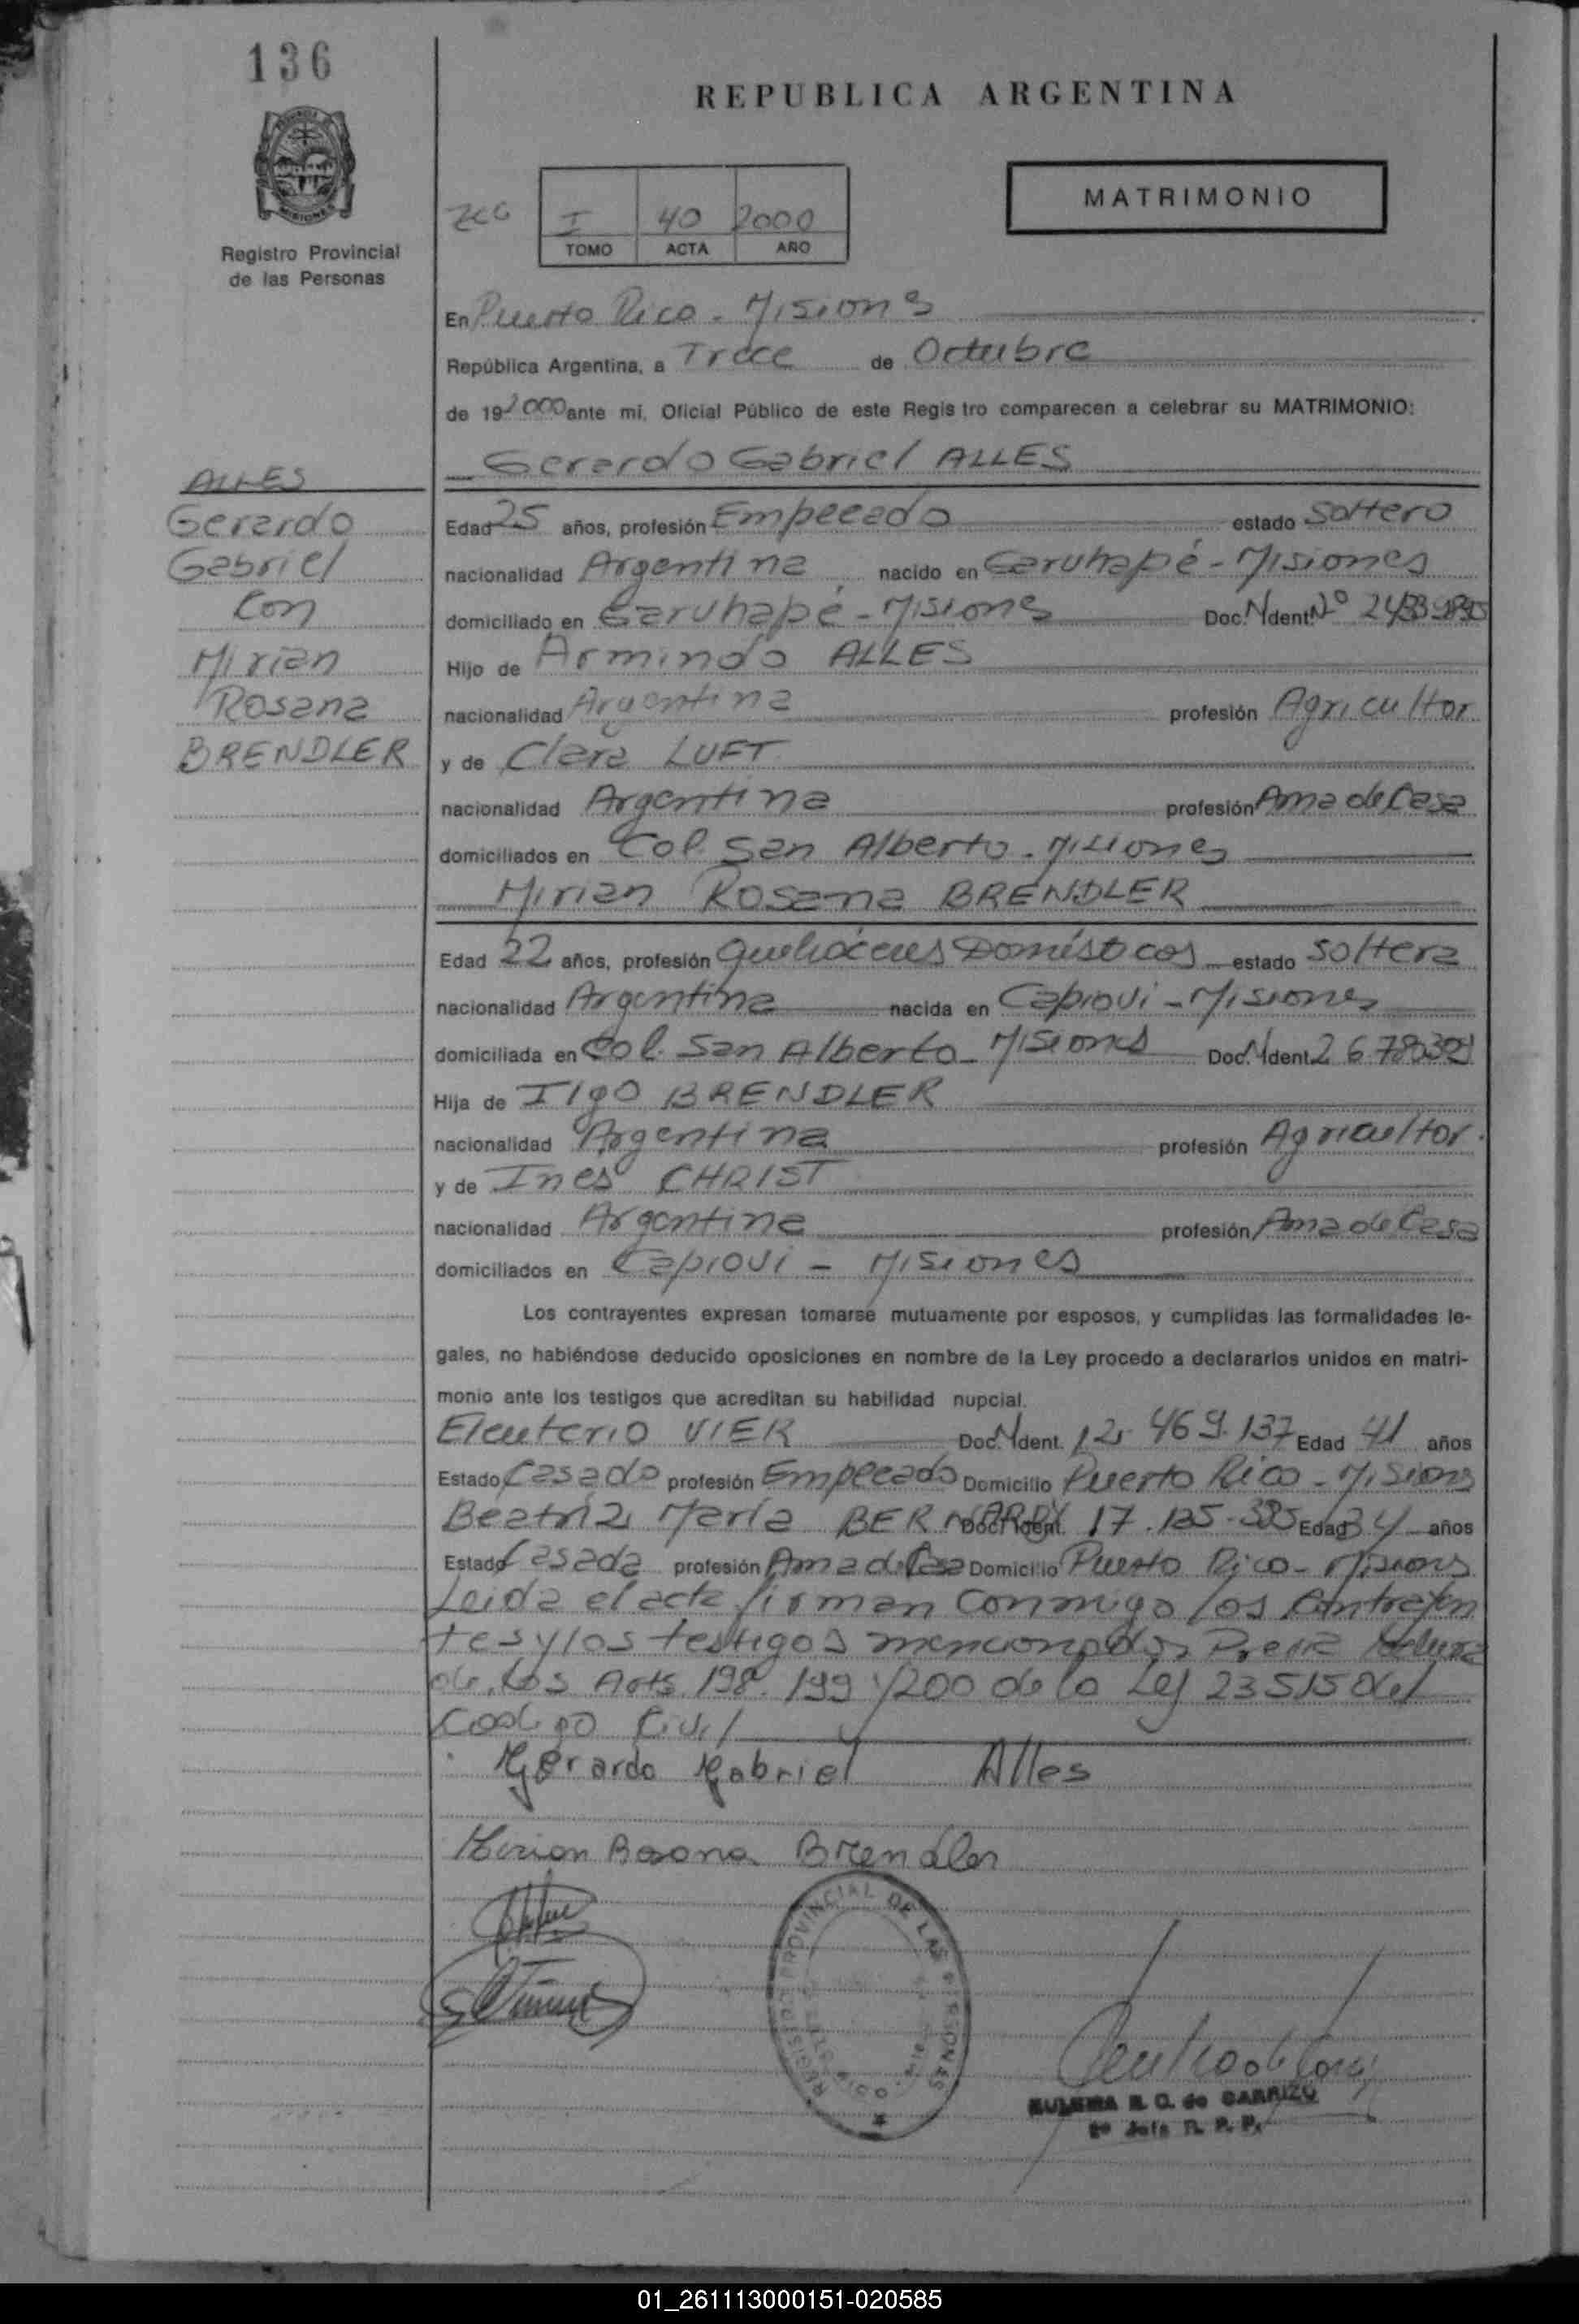 136
REPUBLICA ARGENTINA
MATRIMONIO
I 40 2000
TOMO ACTA AÑO
Registro Provincial
de las Personas
En Puerto Rico - Misiones
República Argentina, a Trece de Octubre
de 19 2000 ante mi, Oficial Público de este Regis tro comparecen a celebrar su MATRIMONIO:
Gerardo Gabriel ALLES
ALLES
Gerardo
Gabriel
Con
Mirian
Rosana
BRENDLER
Edad 25 años, profesión Empleado estado Soltero
nacionalidad Argentina nacido en Garuhapé - Misiones
domiciliado en Garuhapé - Misiones Doc. N. Ident. Nº
Hijo de Armindo ALLES
nacionalidad Argentina profesión Agricultor
y de Clara LUFT
nacionalidad Argentina profesión Ama de Casa
domiciliados en Col. San Alberto - Misiones
Mirian Rosana BRENDLER
Edad 22 años, profesión Quehaceres Domésticos estado Soltera
nacionalidad Argentina nacida en Capiovi - Misiones
domiciliada en Col. San Alberto - Misiones Doc. N. Ident.
Hija de Ilgo BRENDLER
nacionalidad Argentina profesión Agricultor.
y de Ines CHRIST
nacionalidad Argentina profesión Ama de Casa
domiciliados en Capiovi - Misiones
Los contrayentes expresan tomarse mutuamente por esposos, y cumplidas las formalidades le-
gales, no habiéndose deducido oposiciones en nombre de la Ley procedo a declararlos unidos en matri-
monio ante los testigos que acreditan su habilidad nupcial.
Eleuterio VIER Doc. N. Ident. 12.469.137 Edad 41 años
Estado Casado profesión Empleado Domicilio Puerto Rico - Misiones
Beatriz María BERNARDY Doc. Ident. 17.135.385 Edad 34 años
Estado Casada profesión Ama de Casa Domicilio Puerto Rico - Misiones
Leida el acta firman conmigo los Contrayen
tes y los testigos mencionados Previa lectura
de los Arts. 198. 199 y 200 de la Ley 23515 del
Codigo Civil
Gerardo Gabriel Alles
Mirian Rosana Brendler
REGISTRO PROVINCIAL DE LAS PERSONAS
R. C. de CARRIZO
Jefa R. P. P.
01_261113000151-020585